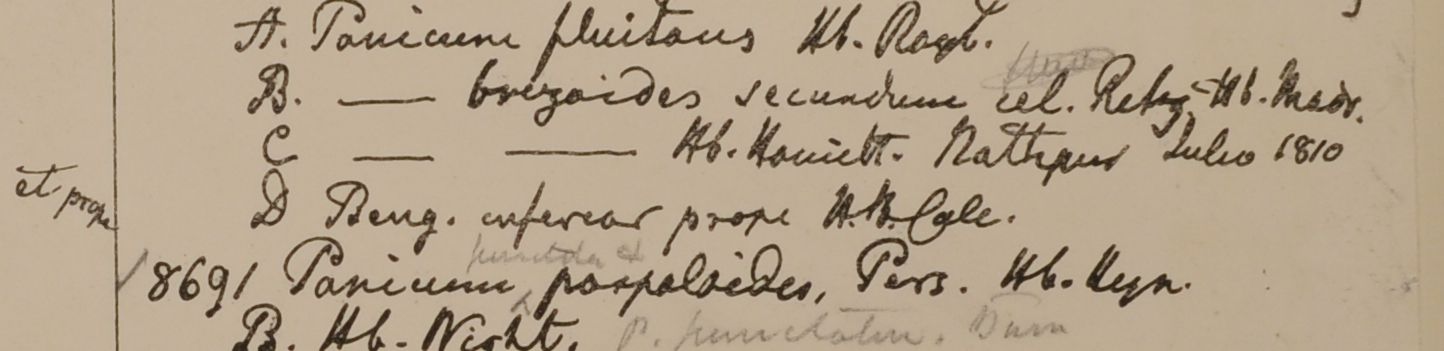 A. Panicum fluitans Hb. Roxb.
B. — brizoides secundum cel. Retz, Hb. Madr.
C — — Hb. Hamilt. Nathpur Julio 1810
et prope
D Beng. inferior prope H.B. Calc.
8691 Panicum paspaloides, Pers. Hb. Heyn.
B. Hb. Wight, P. punctatum. Burm